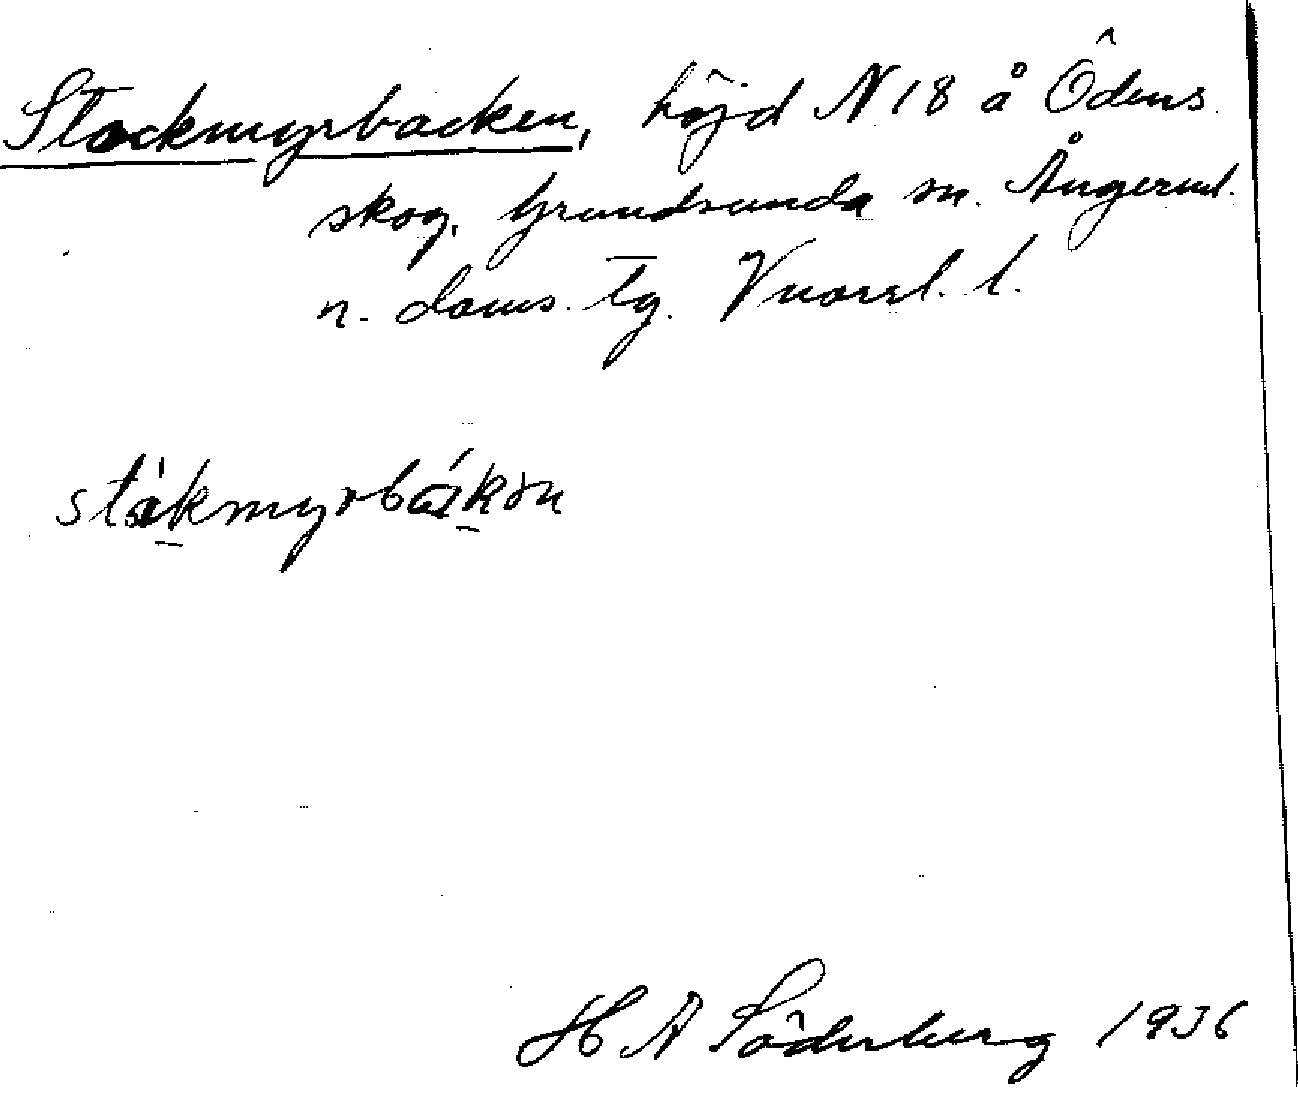 Stockmyrbacken, höjd N 18 å Ödens
skog. Grundsunda sn. Ångerml.
n. doms. tg. V norrl. l.
H A Söderberg 1936